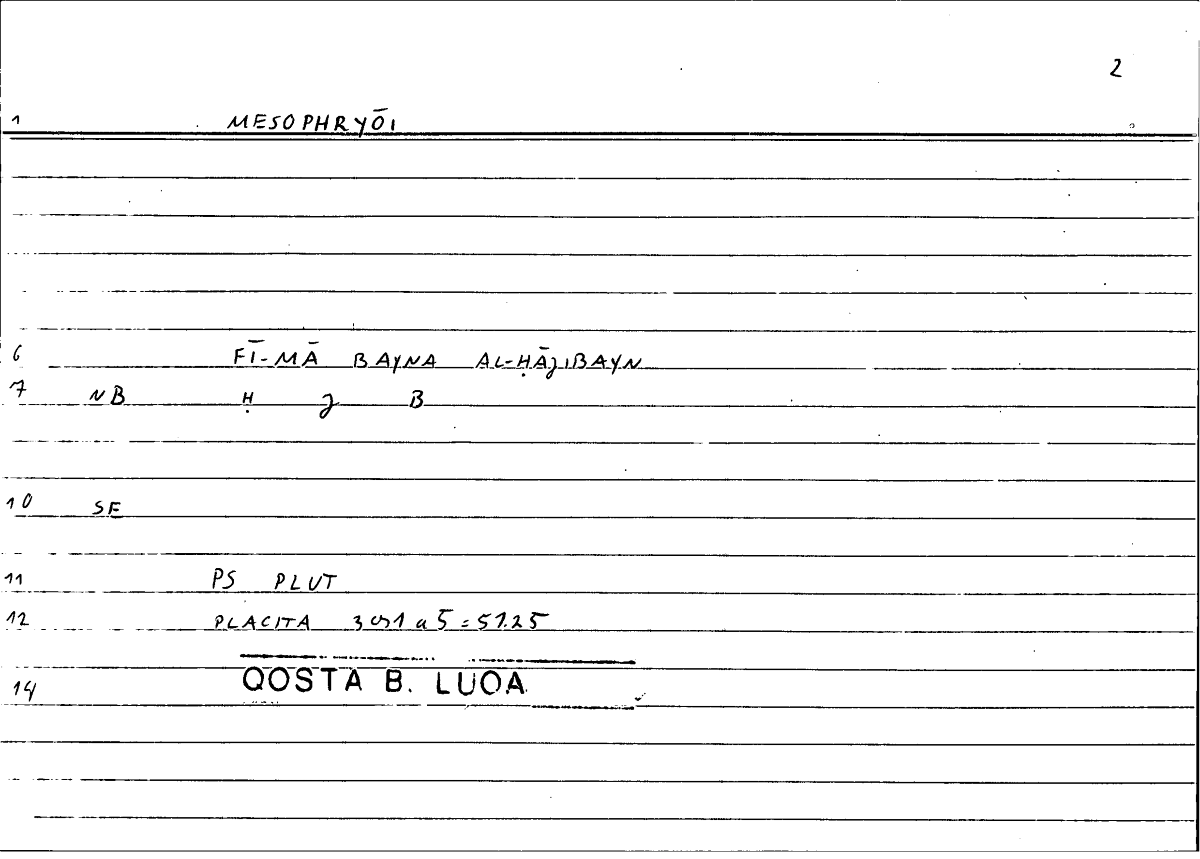 2
1 MESOPHRYŌI
6 FĪ-MĀ BAYNA AL-ḤĀJIBAYN
7 NB Ḥ J B
10 SE
11 PS PLUT
12 PLACITA 901 a 5 = 51.25
14 QOSTA B. LUQA